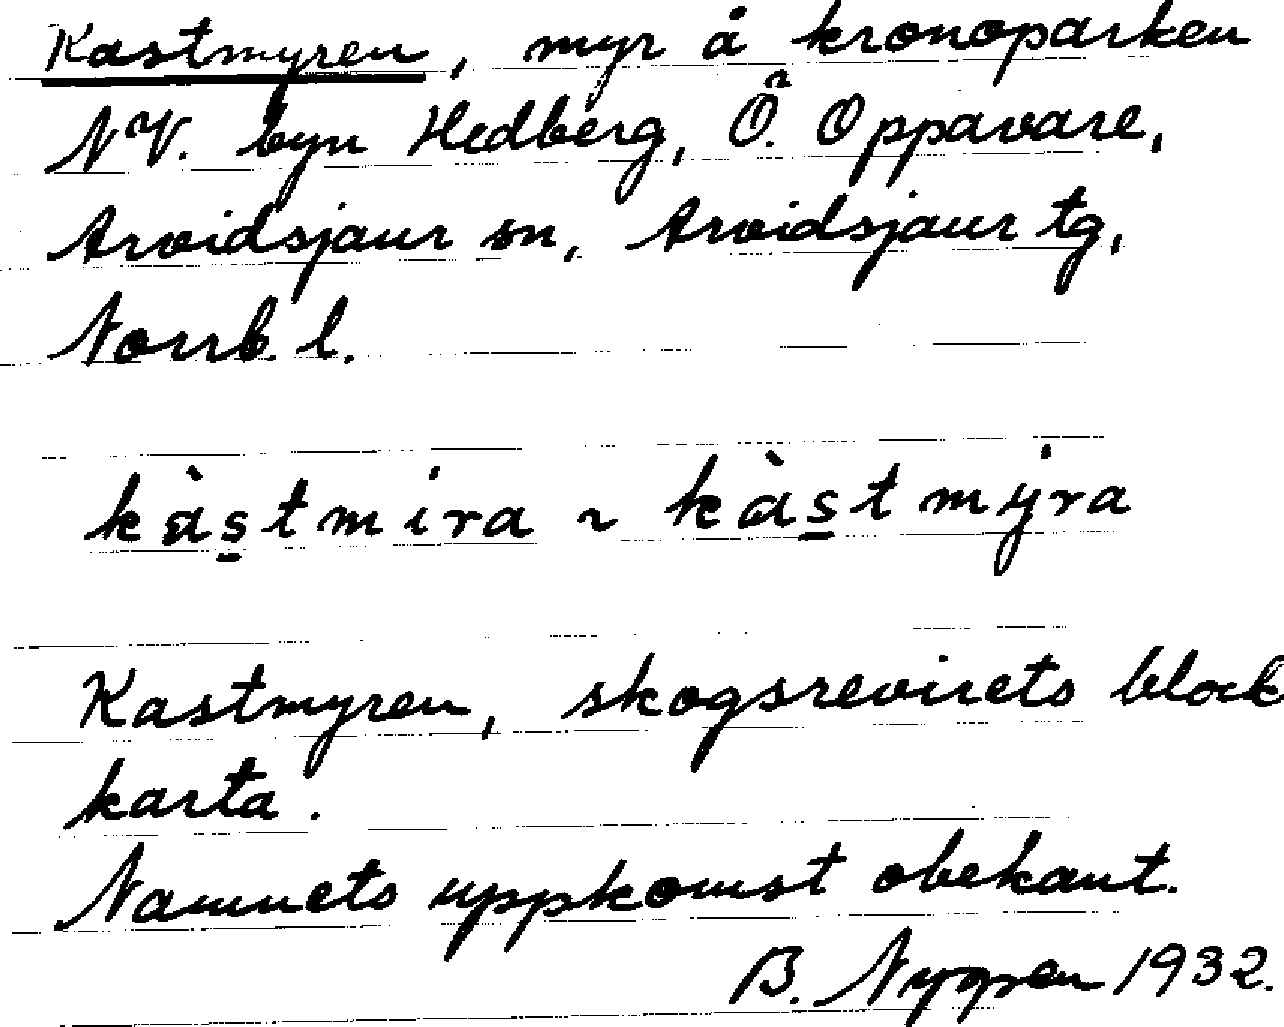 Kastmyren, myr å kronoparken
NV. byn Hedberg, Ö. Oppavare,
Arvidsjaur sn, Arvidsjaur tg,
Norrb. l.
kàs̱tmira ~ kàs̱tmyra
Kastmyren, skogsrevirets block
karta.
Namnets uppkomst obekant.
B. Nygren 1932.